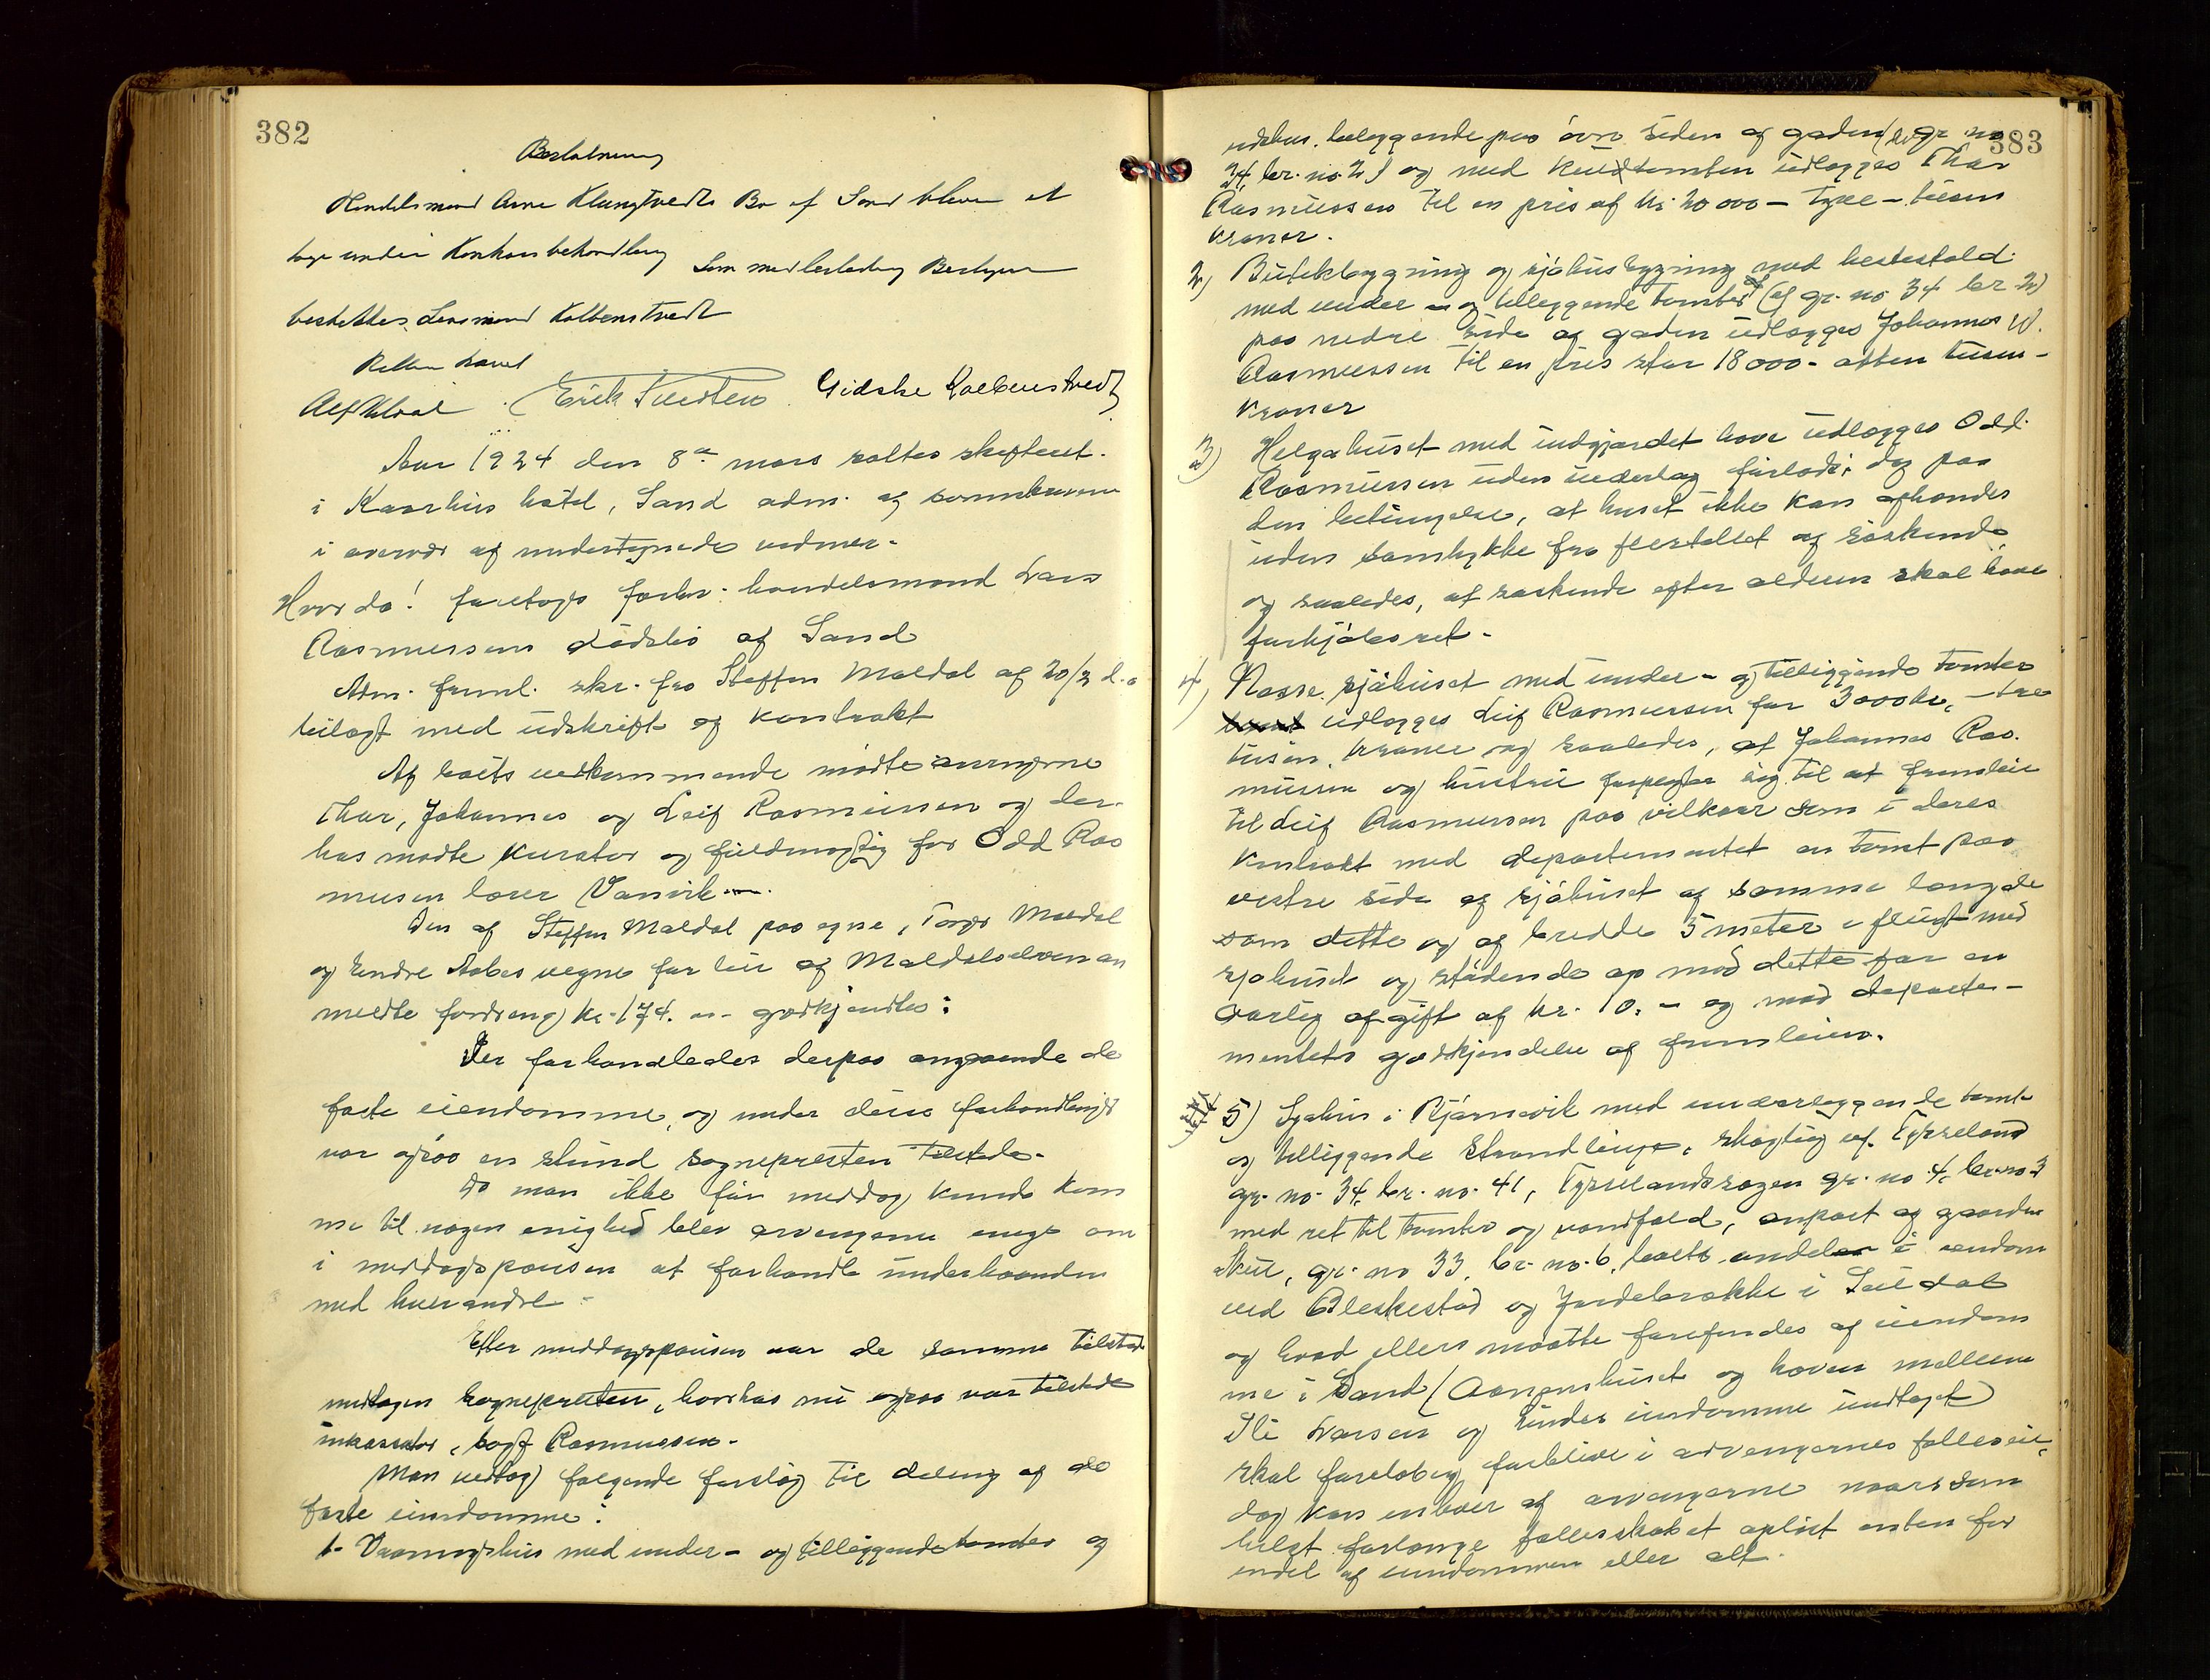 382
Beslutning
Handelsmand Arne Klungtvedts Bo af Sand bliver at
tage under Konkursbehandling Som medlertidig Bestyrer
beskikkes Lensmand Kolbenstvedt
Retten hævet
Alf Utval Erik Tveiten Gidske Kolbenstvedt
Aar 1924 den 8de mars sattes skifteret
i Kaarhus hotel, Sand adm. af sorenskriveren
i overvær af undertegnede vidner.
Hvorda! foretoges forhv. handelsmand Lars
Rasmussens dødsbo af Sand
Adm. freml. skr. fra Steffen Maldal af 20/2 d.a
bilagt med udskrift og kontrakt
Af boets vedkommende mødte arvingerne
Thor, Johannes og Leif Rasmussen og des-
has mødte kurator og fuldmægtig for Odd Ras
mussen lærer Vanvik
Den af Steffen Maldal paa egne, Torger Maldal
og Endre Aabøs vegne for leie af Maldalselven an
meldte fordring kr. 174. godkjendtes:
Der forhandledes derpaa angaaende de
faste eiendomme, og under disse forhandlinger
var ogsaa en stund sogneprsten tilstede.
Da man ikke før middag kunde kom
me til nogen enighed blev arvingerne enige om
i middagspausen at forhandle underhaanden
med hverandre
Efter middagspausen var de samme tilstede
undtagen sognepresten, hvorhos nu ogsaa var tilstede
inkassator, sagf Rasmussen.
Man vedtog følgende forslag til deling af de
faste eiendomme:
1. Vaaningshus med under- og tilliggende tomter og
383
udshus. beliggende paa øvre siden af gaden (af gr. no
34, br. no. 2) og med tomten udlægges Thor
Rasmussen til en pris af kr. 20 000 – tyve – tusen
kroner.
2) Butikbygning og sjøhusbygning med hestestald
med under – og tilleggende tomter (af gr. no 34 br 2)
paa nedre side af gaden udlægges Johannes W.
Rasmussen til en pris stor 18 000 – atten tusen –
kroner
3) Helgahuset med indgjærdet have udlægges Odd
Rasmussen uden vederlag forlods, dog paa
den betingelse, at huset ikke kan afhændes
uden samtykke fra flertallet af søskende
og saaledes, at søskende efter alderen skal have
forkjøbsret –
4) Næsse sjøhuset med under – og tilliggende tomter
udlægges Leif Rasmussen for 3000 kr, – tre
tusen kroner og saaledes, at Johannes Ras
mussen og hustru forpligter sig til at fremleie
til Leif Rasmussen paa vilkaar som i deres
kontrakt med departementet en tomt paa
vestre side af sjøhuset af samme længde
som dette og af bredde 5 meter i flugt med
sjøhuset og stødende op mod dette for en
aarlig afgift af kr. 10. – og mod departe-
mentets godkjendelse af fremleien.
5) Sjøhus i Bjørnevik med underliggende tomt
og tilliggende strandlinje, skogteig af. Tysseland
gr. no. 34, br. no. 41, Tysselandssagen gr. no 4, br. no 3
med ret til tomter og vandfald, anpart af gaarden
gr. no 33, br. no. 6, boets andel i eiendom
ved Bleskestad og Jordebrække i Suldal
og hvad ellers maatte forefindes af eiendom
me i Sand (Aanenshuset og haven mellem
Ole Larsens og eiendomme undtaget)
skal foreløbig forblive i arvingernes fælleseie,
dog kan enhver af arvingerne naarsom
helst forlange fællesskabet opløst enten for
endel af eiendommen eller alt.